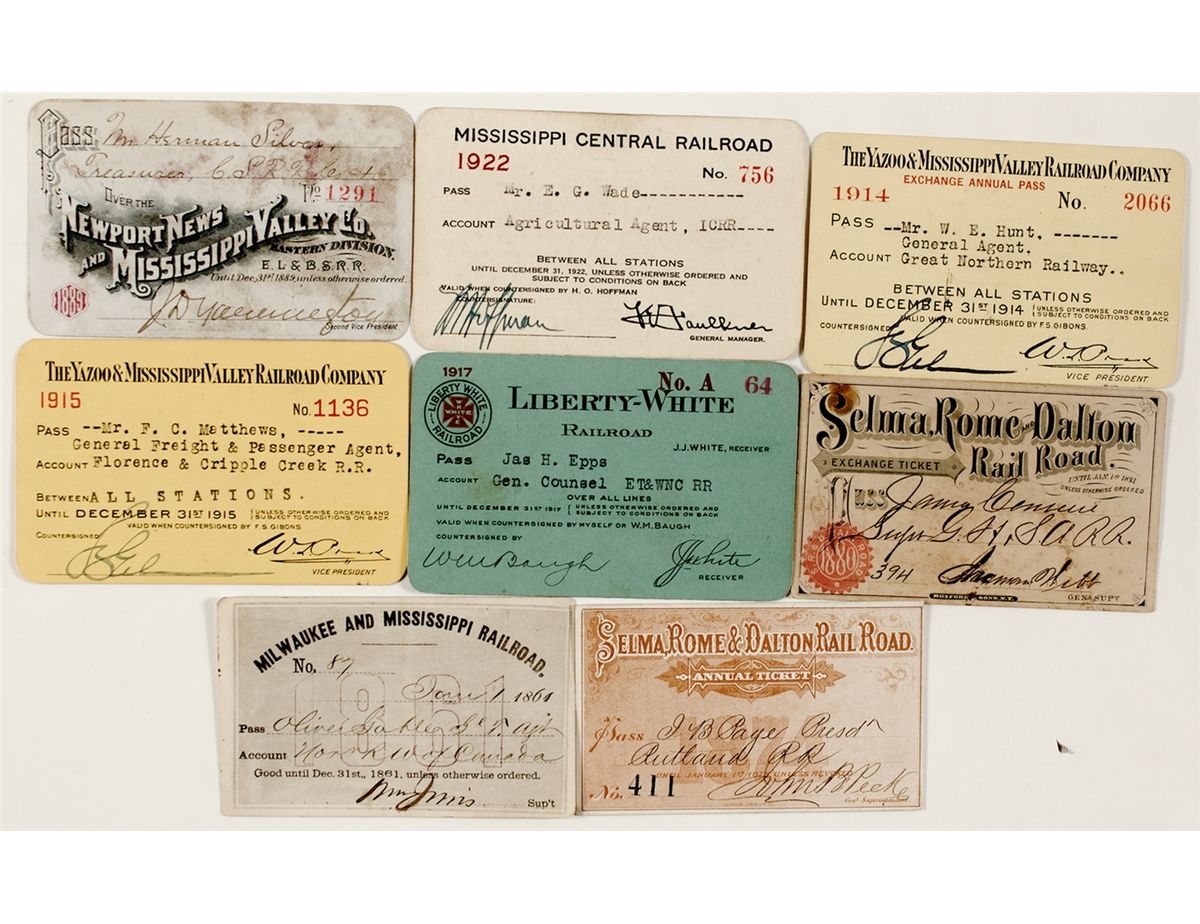 Pass Mr Herman Silver,
Treasurer, C.S.
OVER THE
No 1291
NEWPORT NEWS
AND MISSISSIPPI VALLEY CO.
EASTERN DIVISION.
E.L. & B.S.R.R.
Until Dec. 31st 1889, unless otherwise ordered.
1889
Second Vice President.
MISSISSIPPI CENTRAL RAILROAD
1922
No. 756
PASS Mr. E. G. Wade-----------
ACCOUNT Agricultural Agent, ICRR----
BETWEEN ALL STATIONS
UNTIL DECEMBER 31, 1922, UNLESS OTHERWISE ORDERED AND
SUBJECT TO CONDITIONS ON BACK
VALID WHEN COUNTERSIGNED BY H. O. HOFFMAN
COUNTERSIGNATURE:
H O Hoffman
Faulkner
GENERAL MANAGER.
THE YAZOO & MISSISSIPPI VALLEY RAILROAD COMPANY
EXCHANGE ANNUAL PASS
1914 No. 2066
PASS --Mr. W. E. Hunt, -------
General Agent.
ACCOUNT Great Northern Railway..
BETWEEN ALL STATIONS
UNTIL DECEMBER 31ST 1914 {UNLESS OTHERWISE ORDERED AND
SUBJECT TO CONDITIONS ON BACK
VALID WHEN COUNTERSIGNED BY F.S. GIBONS.
COUNTERSIGNED
VICE PRESIDENT.
THE YAZOO & MISSISSIPPI VALLEY RAILROAD COMPANY
1915 No. 1136
PASS --Mr. F. C. Matthews, -----
General Freight & Passenger Agent,
ACCOUNT Florence & Cripple Creek R.R.
BETWEEN ALL STATIONS.
UNTIL DECEMBER 31ST 1915 {UNLESS OTHERWISE ORDERED AND
SUBJECT TO CONDITIONS ON BACK
VALID WHEN COUNTERSIGNED BY F.S. GIBONS
COUNTERSIGNED
VICE PRESIDENT
1917
No. A 64
LIBERTY WHITE
WHITE
RAILROAD
LIBERTY-WHITE
RAILROAD
J.J. WHITE, RECEIVER
PASS Jas H. Epps
ACCOUNT Gen. Counsel ET&WNC RR
OVER ALL LINES
UNTIL DECEMBER 31ST 1917 {UNLESS OTHERWISE ORDERED AND
SUBJECT TO CONDITIONS ON BACK
VALID WHEN COUNTERSIGNED BY MYSELF OR W.M. BAUGH
COUNTERSIGNED BY
W M Baugh
J J White
RECEIVER
Selma, Rome AND Dalton
Rail Road.
EXCHANGE TICKET
UNTIL JAN. 1st 1881
UNLESS OTHERWISE ORDERED
Pass James
Supt
1880
394
GEN. SUPT
MILWAUKEE AND MISSISSIPPI RAILROAD.
No. 87
Jan 1 1861
Pass Oliver
Account
Good until Dec. 31st., 1861, unless otherwise ordered.
Sup't
SELMA, ROME & DALTON RAIL ROAD.
ANNUAL TICKET
Pass J B Page Presdt
Rutland RR
UNLESS REVOKED
No. 411
Genl Superintendent